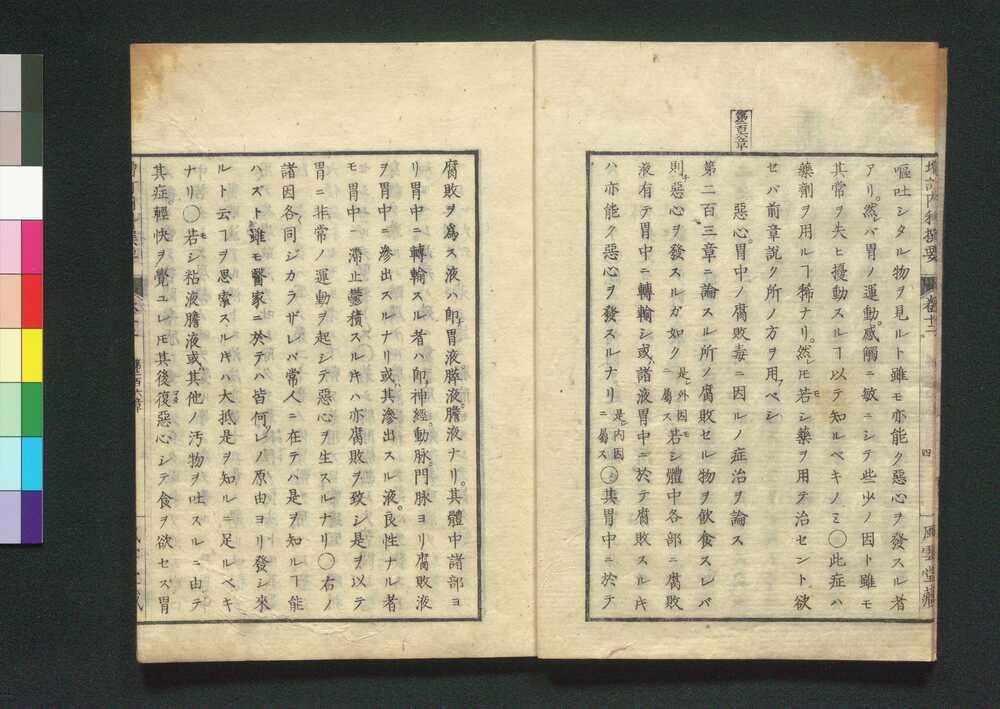 増訂内科撰要
卷十二
四
風雲堂藏
嘔吐シタル物ヲ見ルト雖モ亦能ク惡心ヲ發スル者
アリ。然レバ胃ノ運動。感觸ニ敏ニシテ些少ノ因ト雖モ
其常ヲ失ヒ擾動スルヿ以テ知ルベキノミ〇此症ハ
藥劑ヲ用ルヿ稀ナリ。然レモ若シ藥ヲ用テ治セント欲
セバ前章說ク所ノ方ヲ用フベシ
惡心。胃中ノ腐敗毒ニ因ルノ症治ヲ論ス
第二百三章ニ論スル所ノ腐敗セル物ヲ飮食スレバ
則チ惡心ヲ發スルガ如ク是レ外因ニ屬ス若シ體中各部ニ腐敗
液有テ胃中ニ轉輸シ或ハ諸液胃中ニ於テ腐敗スルキ
ハ亦能ク惡心ヲ發スルナリ是レ内因ニ屬ス〇其胃中ニ於テ
腐敗ヲ爲ス液ハ卽チ胃液膵液膽液ナリ。其體中諸部ヨ
リ胃中ニ轉輸スル者ハ卽チ神經動脉。門脉ヨリ腐敗液
ヲ胃中ニ滲出スルナリ或ハ其滲出スル液。良性ナル者
モ胃中ニ滯止鬱積スルキハ亦腐敗ヲ致シ是ヲ以テ
胃ニ非常ノ運動ヲ起シテ惡心ヲ生スルナリ〇右ノ
諸因各〻同ジカラザレバ常人ニ在テハ是ヲ知ルヿ能
ハズト雖モ醫家ニ於テハ皆何レノ原由ヨリ發シ來
ルト云フヿヲ思索スルキハ大抵是ヲ知ルニ足ルベキ
ナリ〇若シ粘液膽液或ハ其他ノ汚物ヲ吐スルニ由テ
其症。輕快ヲ覺ユレモ其後復タ惡心シテ食ヲ欲セズ胃